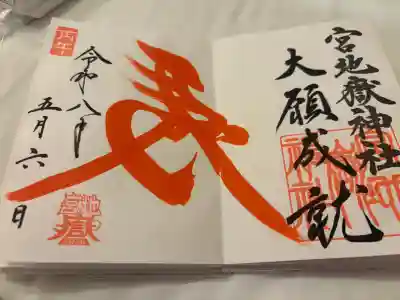 宮地嶽神社
大願成就
丙午
令和八年
五月六日